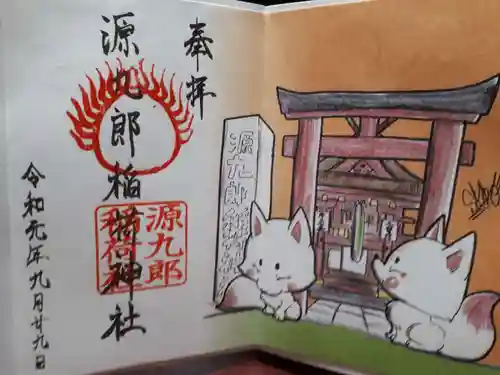 奉拝
源九郎稲荷神社
源九郎
稲荷
令和元年九月廿九日
源九郎稲荷神社